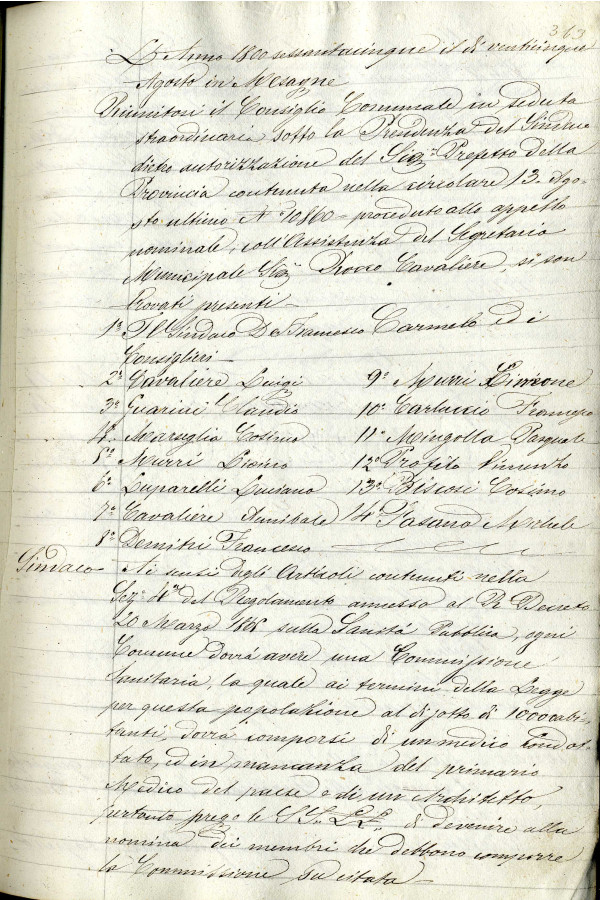 363
L'Anno 1800 sessantacinque il dì venticinque
Agosto in Mesagne
Riunitosi il Consiglio Comunale in seduta
straordinaria sotto la Presidenza del Sindaco
dietro autorizzazione del Sig.r Prefetto della
Provincia contenuta nella circolare 13. Ago-
sto ultimo N.o 10860 = proceduto allo appello
nominale, coll'Assistenza del Segretario
Municipale Sig.r Rocco Cavaliere, si son
trovati presenti —
1.o Il Sindaco De Francesco Carmelo ed i
Consiglieri —
2.o Cavaliere Luigi 9.o Murri Simeone
3.o Guarini Claudio 10.o Carluccio
4.o Marsiglia Cosimo 11.o Mingolla Pasquale
5.o Murri 12.o Profilo Vincenzo
6.o Luparelli Luciano 13.o Biscosi Cosimo
7.o Cavaliere Annibale 14. Fasano Michele
8.o Demitri Francesco —
Sindaco — Ai sensi degli Articoli contenuti nella
Sez.e 4.a del Regolamento annesso al R. Decreto
20 Marzo sulla Sanità Pubblica, ogni
Comune dovrà avere una Commissione
Sanitaria, la quale ai termini della Legge
per questa popolazione al di sotto di 10000 abi-
tanti, dovrà comporsi di un medico condot-
tato, ed in mancanza del primario
Medico del paese e di un Architetto,
pertanto prego le SS. LL. di devenire alla
nomina dei membri che debbono comporre
la Commissione su citata —